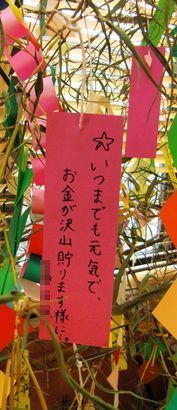 ☆いつまでも元気で、
お金が沢山貯ります様に。